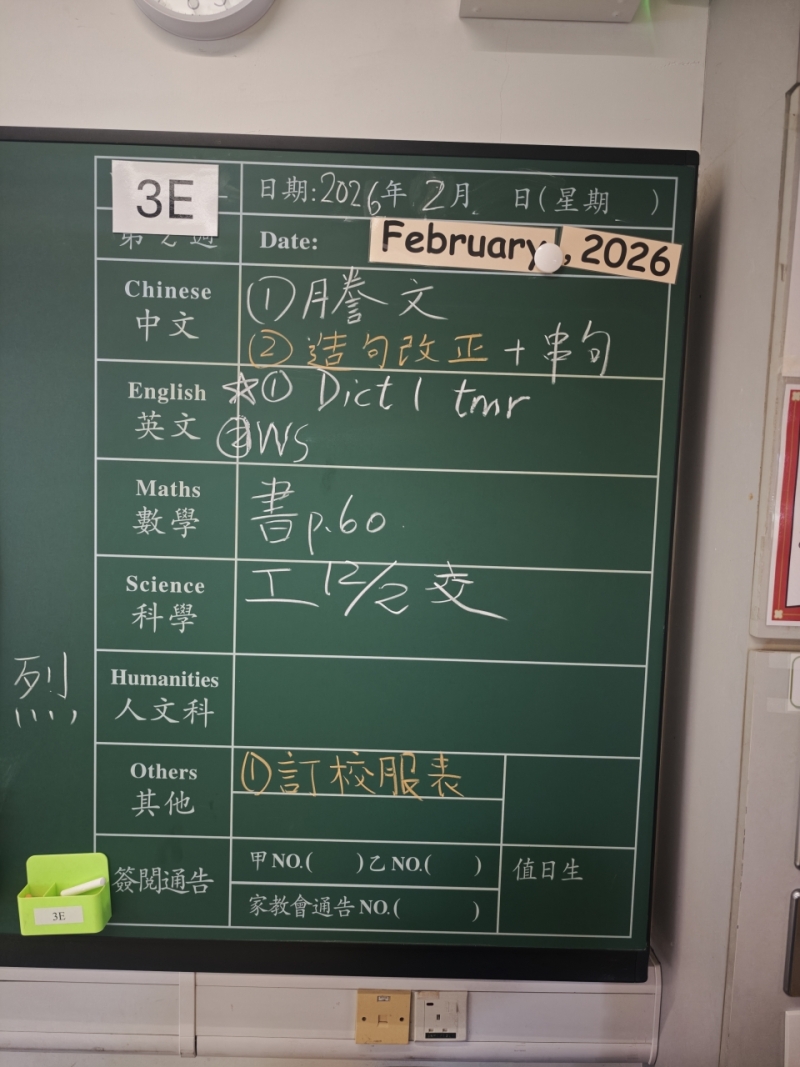 3E
日期:2026年 2月 日(星期 )
第 2 週
Date: February , 2026
Chinese
中文
① 謄文
② 造句改正 + 串句
English
英文
☆① Dict 1 tmr
② WS
Maths
數學
書 p.60
Science
科學
工 12/2 交
烈
Humanities
人文科
Others
其他
① 訂校服表
簽閱通告
甲 NO.( ) 乙 NO.( )
家教會通告 NO.( )
值日生
3E